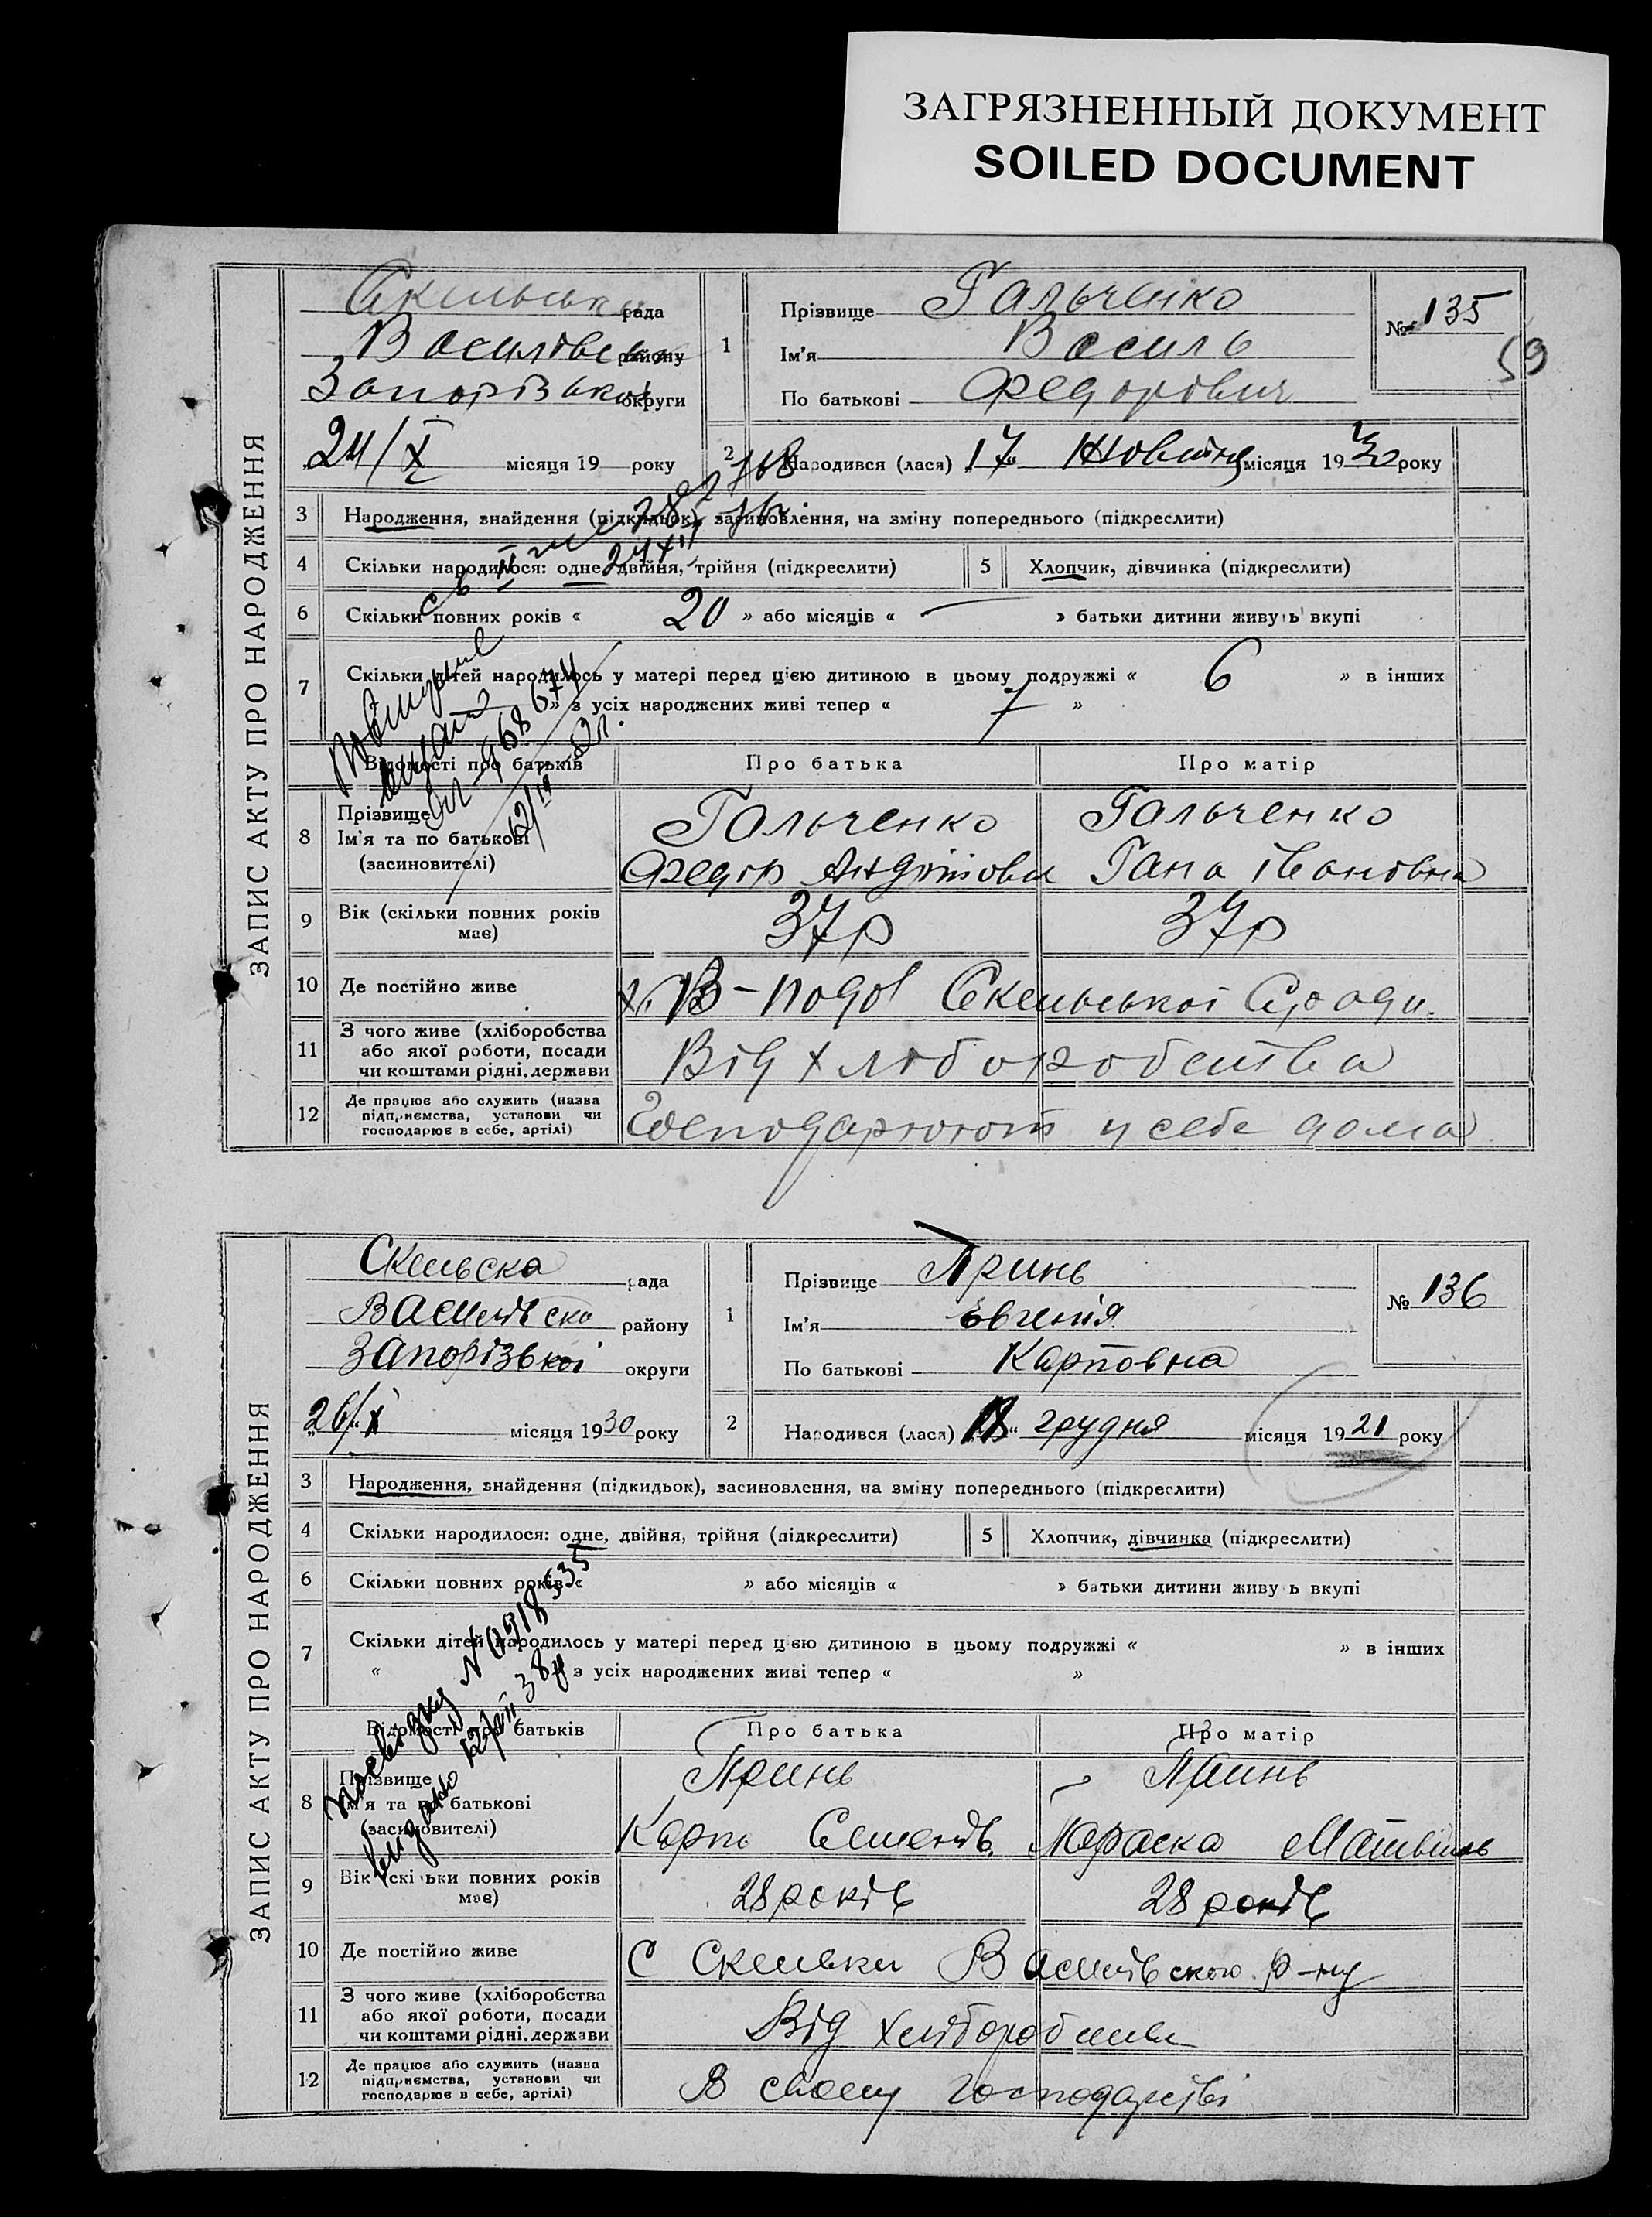 ЗАГРЯЗНЕННЫЙ ДОКУМЕНТ
SOILED DOCUMENT
ЗАПИС АКТУ ПРО НАРОДЖЕННЯ
рада
району
округи
24/X місяця 19 року
1
Прізвище Гальченко
Ім'я Василь
По батькові Федорович
№ 135
59
2 Народився (лася) 17 жовтня місяця 1930 року
3 Народження, знайдення (підкидьок), засиновлення, на зміну попереднього (підкреслити)
4 Скільки народилося: одне, двійня, трійня (підкреслити)
5 Хлопчик, дівчинка (підкреслити)
6 Скільки повних років « 20 » або місяців « — » батьки дитини живуть вкупі
7 Скільки дітей народилось у матері перед цією дитиною в цьому подружжі « 6 » в інших
» з усіх народжених живі тепер « 7 »
Відомості про батьків
Про батька
Про матір
8 Прізвище
Ім'я та по батькові
(засиновителі)
Гальченко
Федір
Гальченко
Гана Івановна
9 Вік (скільки повних років
має)
37 р
37 р
10 Де постійно живе
х. В-подол Скельської С/ради.
11 З чого живе (хліборобства
або якої роботи, посади
чи коштами рідні, держави
Від хліборобства
12 Де працює або служить (назва
підприємства, установи чи
господарює в себе, артілі)
Господарюют у себе дома
ЗАПИС АКТУ ПРО НАРОДЖЕННЯ
Скельска рада
Василівско району
Запорізької округи
26/X місяця 1930 року
1
Прізвище Принь
Ім'я Євгенія
По батькові Карповна
№ 136
2 Народився (лася) 18 грудня місяця 1921 року
3 Народження, знайдення (підкидьок), засиновлення, на зміну попереднього (підкреслити)
4 Скільки народилося: одне, двійня, трійня (підкреслити)
5 Хлопчик, дівчинка (підкреслити)
6 Скільки повних років « » або місяців « » батьки дитини живуть вкупі
7 Скільки дітей народилось у матері перед цією дитиною в цьому подружжі « » в інших
« » з усіх народжених живі тепер « »
Відомості про батьків
Про батька
Про матір
8 Прізвище
Ім'я та по батькові
(засиновителі)
Принь
Карпо Семенів.
Принь
9 Вік (скільки повних років
має)
28 років
28 років
10 Де постійно живе
С Скельки Василівського р-ну
11 З чого живе (хліборобства
або якої роботи, посади
чи коштами рідні, держави
Від хліборобства
12 Де працює або служить (назва
підприємства, установи чи
господарює в себе, артілі)
В своему господарстві